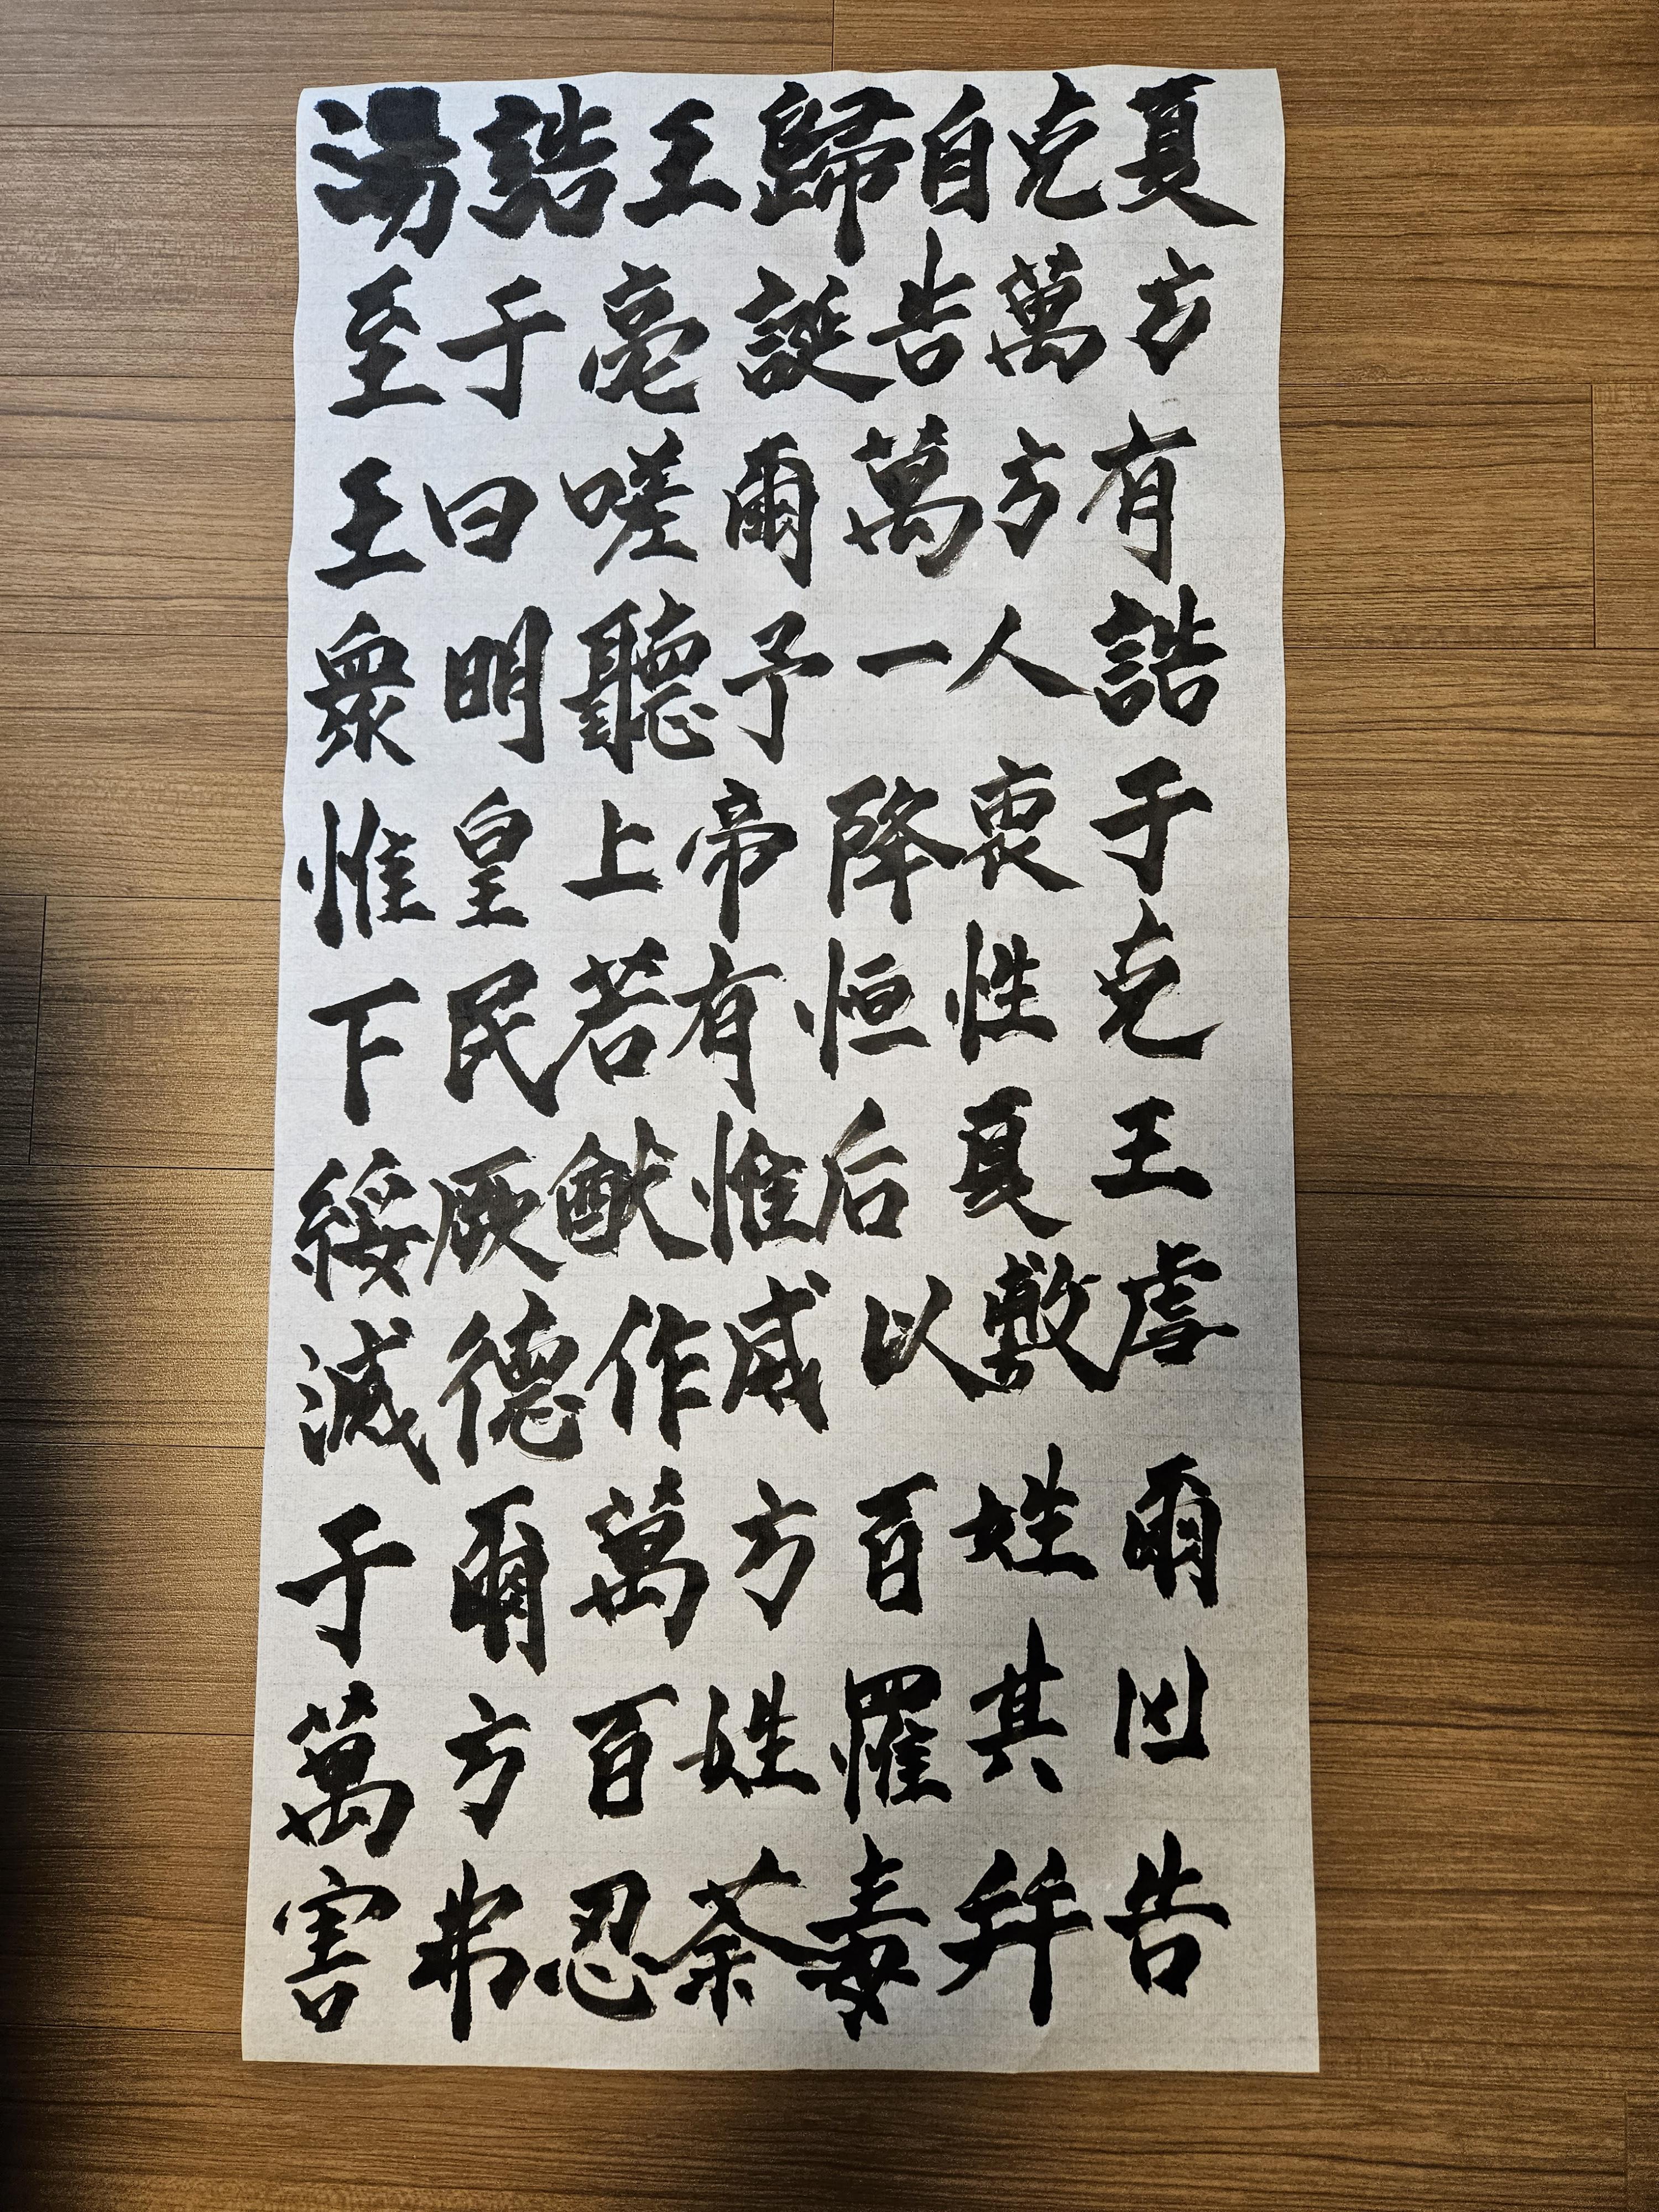 湯誥王歸自克夏
至于亳誕告萬方
王曰嗟爾萬方有
衆明聽予一人誥
惟皇上帝降衷于
下民若有恒性克
綏厥猷惟后夏王
滅德作威以敷虐
于爾萬方百姓爾
萬方百姓罹其凶
害弗忍荼毒幷告